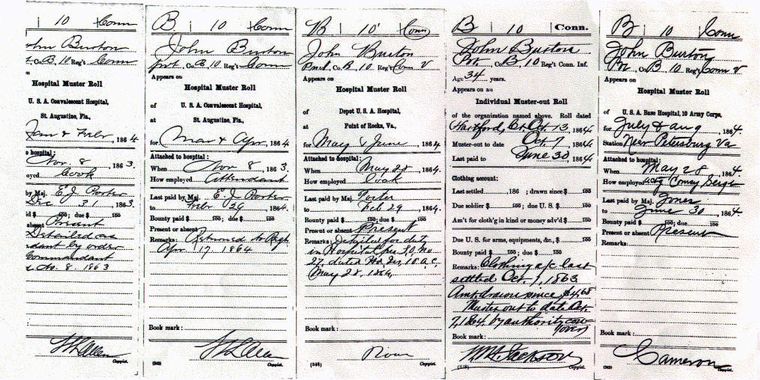 10 Conn
John Burton
Co. B, 10 Reg't Conn
Appears on
Hospital Muster Roll
U. S. A. Convalescent Hospital,
St. Augustine, Fla.,
Jan & Feb'y, 1864
hospital:
Nov. 8, 1863.
Cook
by Maj. E. J. Porter
Dec 31, 1863.
Present
Detailed as
dant by order
Commandant
Nov. 8. 1863
Copyist.
B 10 Conn
John Burton
pvt, Co. B, 10 Reg't Conn
Appears on
Hospital Muster Roll
OF
U. S. A. Convalescent Hospital,
St. Augustine, Fla.,
for Mar & Apr, 1864.
Attached to hospital:
When Nov 8, 1863.
How employed Attendant
Last paid by Maj. E. J. Porter
to Feb 26, 1864.
Bounty paid $ 100; due $ 100
Present or absent
Remarks: Returned to Regt
Apr. 17, 1864
Book mark:
Copyist.
B 10 Conn
John Burton
Co. B, 10 Reg't Conn V
Appears on
Hospital Muster Roll
OF
Depot U. S. A. Hospital,
at
Point of Rocks, Va.,
for May & June, 1864.
Attached to hospital:
When May 28, 1864.
How employed Cook
Last paid by Maj.
to Feb 29, 1864.
Bounty paid $ 100; due $ 100
Present or absent Present
Remarks: Detailed for dut
in Hospital
May 28, 1864
Book mark:
Copyist.
B 10 Conn.
John Burton
Pvt, Co. B, 10 Reg't Conn. Inf.
Age 34 years.
Appears on an
Individual Muster-out Roll
of the organization named above. Roll dated
Hartford, Ct. Oct. 13, 1864.
Muster-out to date Oct 7, 1864.
Last paid to June 30, 1864.
Clothing account:
Last settled , 186 ; drawn since $ 100
Due soldier $ 100; due U. S. $ 100
Am't for cloth'g in kind or money adv'd $ 100
Due U. S. for arms, equipments, &c., $ 100
Bounty paid $ 100; due $ 100
Remarks: Clothing a/c last
settled Oct. 1, 1863
Amt. drawn since $4.68
Muster out to date Oct.
7, 1864, by authority
Book mark:
Copyist.
B 10 Conn
John Burton
Co. B, 10 Reg't Conn V
Appears on
Hospital Muster Roll
OF
U. S. A. Base Hospital, 10 Army Corps,
for July & Aug, 1864.
Station Near Petersburg Va
Attached to hospital:
When May 28, 1864
How employed
Last paid by Maj.
to June 30, 1864
Bounty paid $ 100; due $ 100
Present or absent Present
Remarks:
Book mark:
Cameron
Copyist.